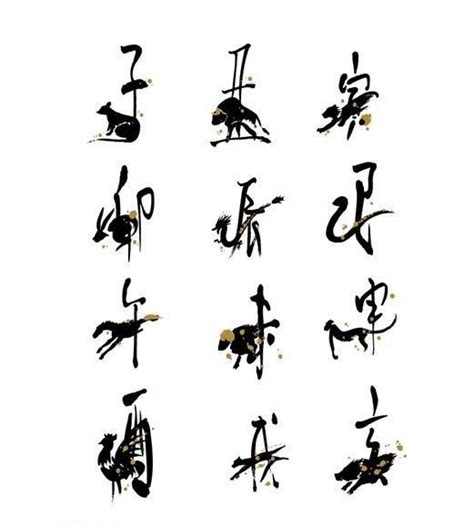 子丑寅
卯辰巳
午未申
酉戌亥